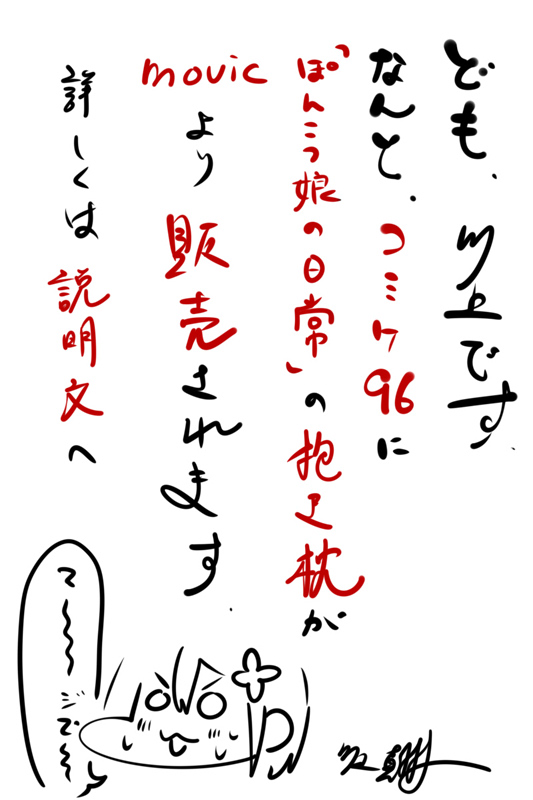 ども、川上です。
なんと、コミケ96に
「ぽんこつ娘の日常」の抱き枕が
movicより販売されます。
詳しくは説明文へ
て〜〜〜じで〜〜
川上真樹